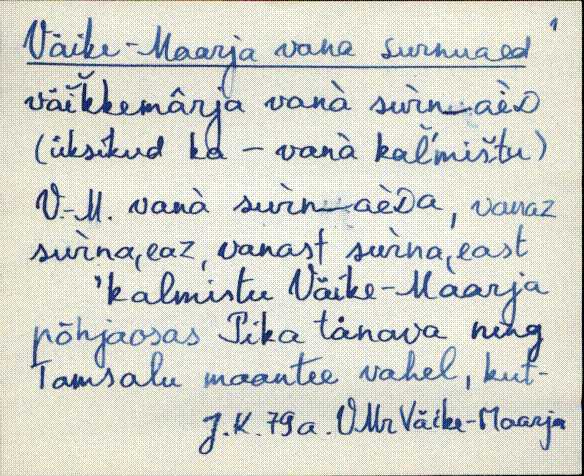 1
Väike-Maarja vana surnuaed
väĭkkemârja vanà sùrn‿aèD
(üksikud ka – vanà kal̆'mištu)
V.-M. vanà sùrn‿aèDa, vanaz
sùrna,eaz, vanast sùrna,east
'kalmistu Väike-Maarja
põhjaosas Pika tänava ning
Tamsalu maantee vahel, kut-
J.K. 79a. VMr Väike-Maarja